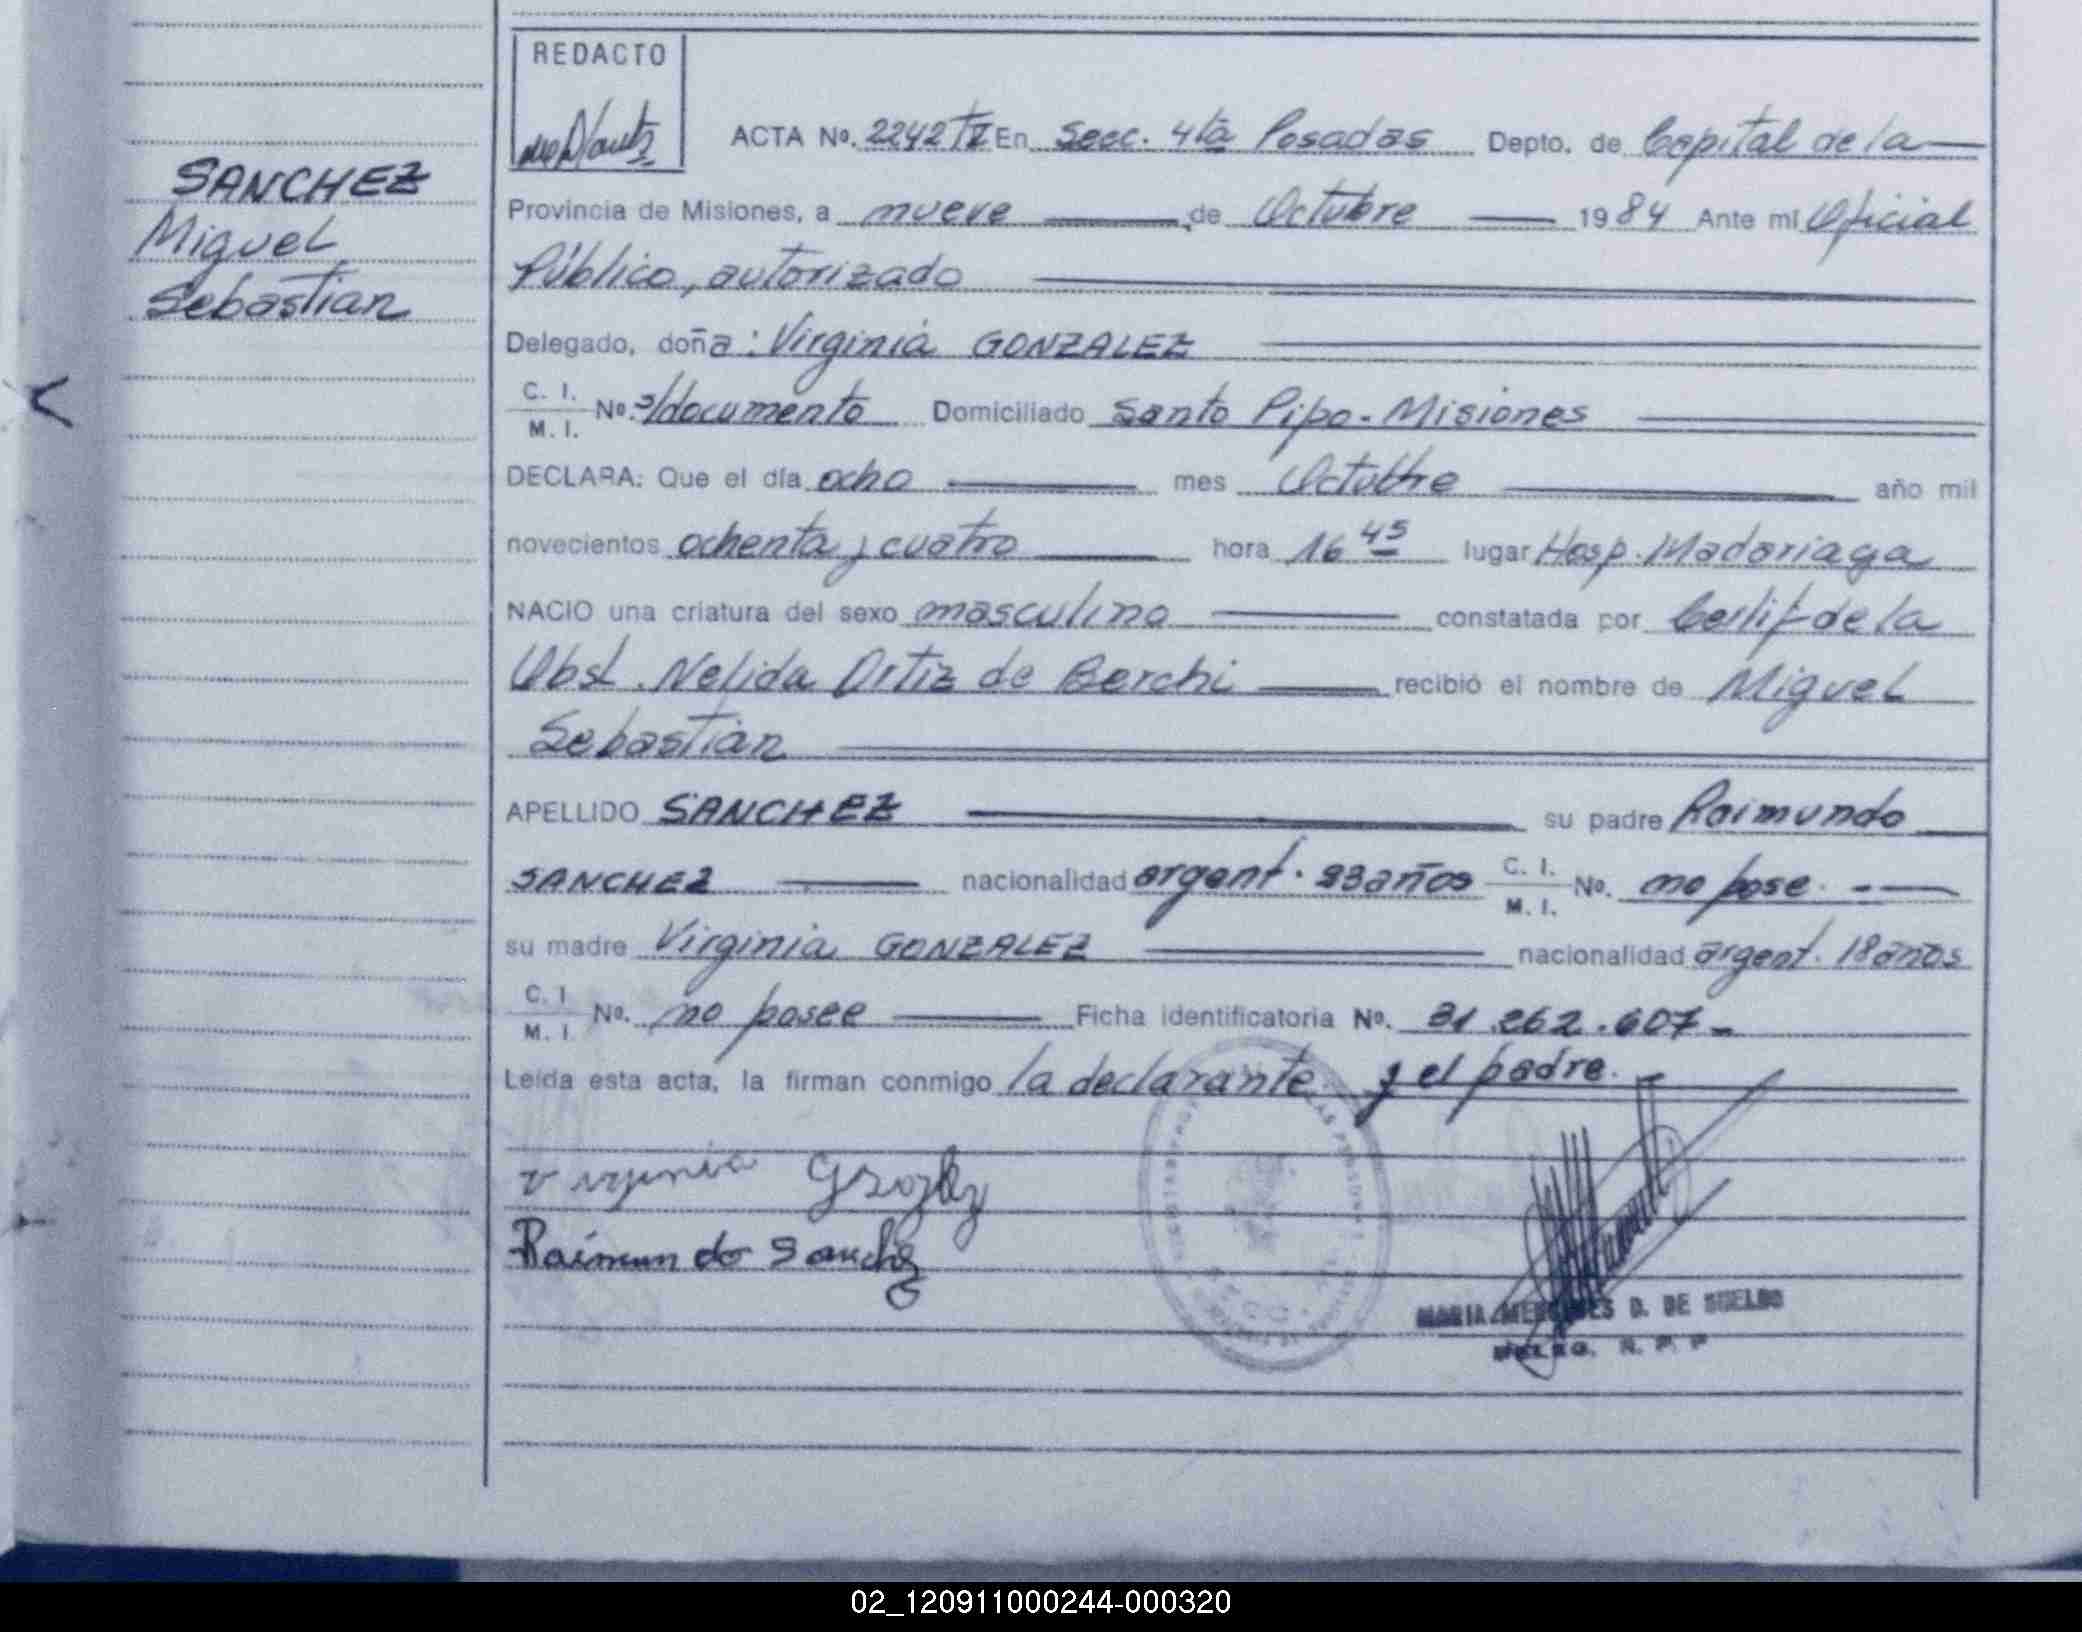 REDACTO
ACTA Nº. 2242 En Secc. 4ta Posadas Depto. de Capital de la
Provincia de Misiones, a nueve de Octubre 1984 Ante mi Oficial
Público, autorizado
Delegado, doña: Virginia GONZALEZ
C. I.
M. I. Nº. s/documento Domiciliado Santo Pipo - Misiones
DECLARA: Que el día ocho mes Octubre año mil
novecientos ochenta y cuatro hora 16 45 lugar Hosp. Madariaga
NACIO una criatura del sexo masculino constatada por Certif de la
Obst. Nelida Ortiz de Berchi recibió el nombre de Miguel
Sebastian
APELLIDO SANCHEZ su padre Raimundo
SANCHEZ nacionalidad argent. 23 años C. I. M. I. Nº. no pose.
su madre Virginia GONZALEZ nacionalidad argent. 18 años
C. I. M. I. Nº. no posee Ficha identificatoria Nº. 31.262.607-
Leída esta acta, la firman conmigo la declarante y el padre.
Virginia
Raimundo Sanchez
MARIA MERCEDES D. DE SUELDO
DELEG. R. P. P
SANCHEZ
Miguel
Sebastian
02_120911000244-000320